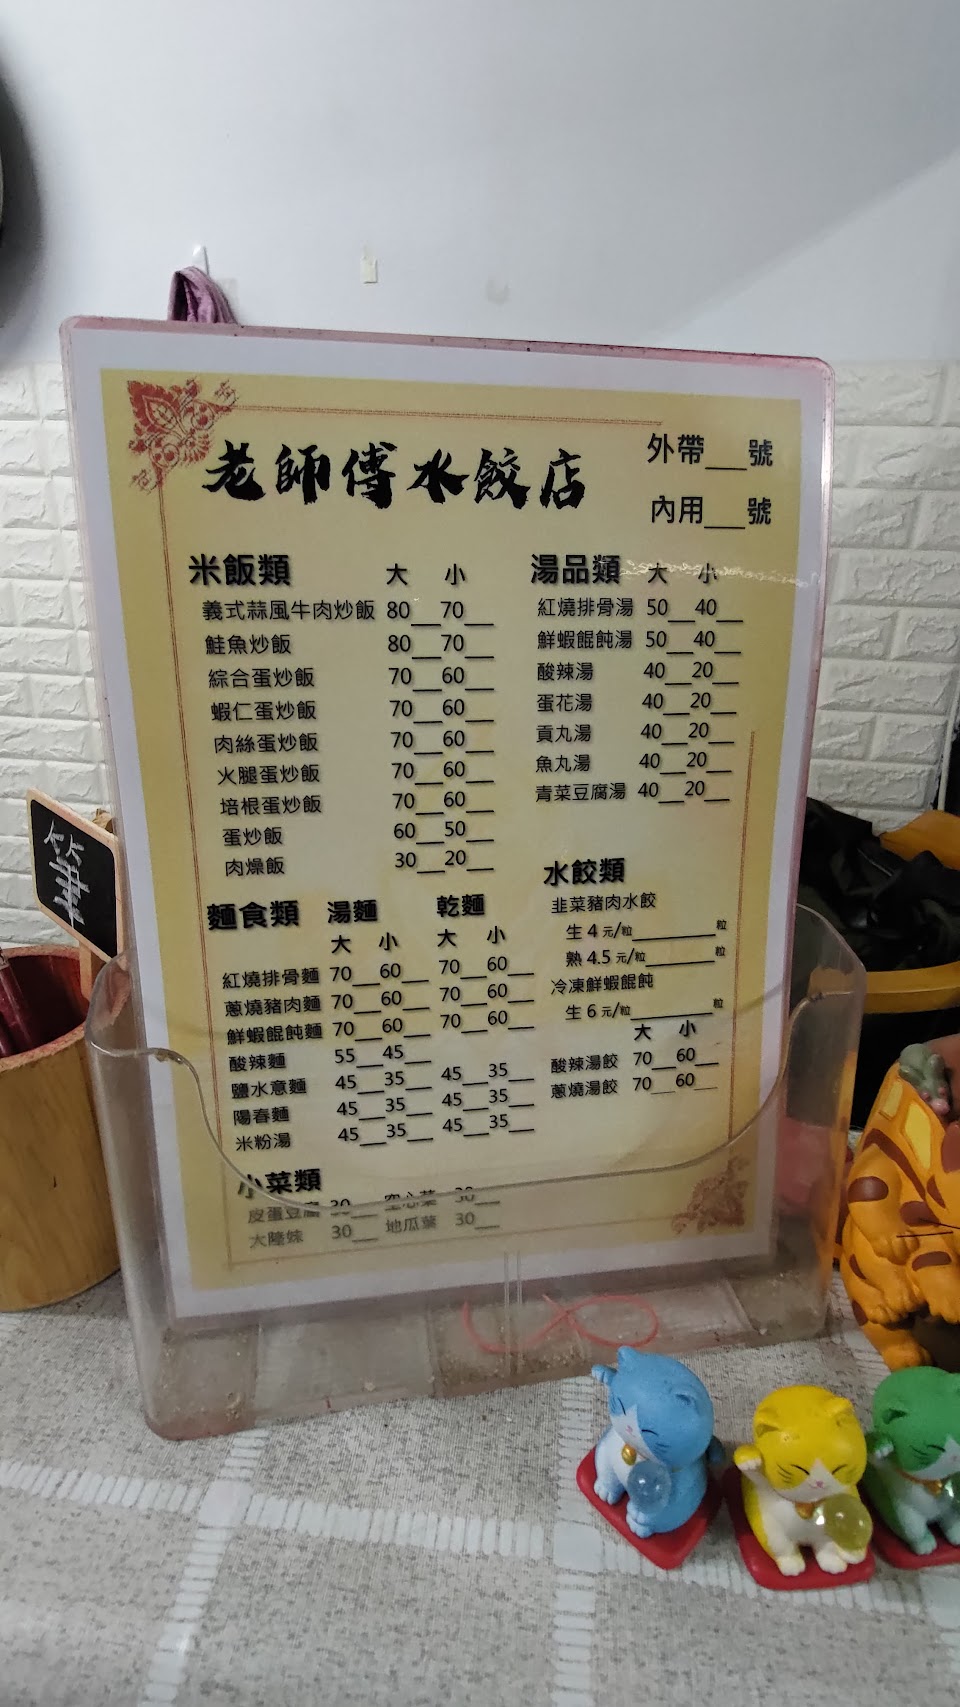 老師傅水餃店
外帶___號
內用___號
米飯類 大 小
義式蒜風牛肉炒飯 80__70__
鮭魚炒飯 80__70__
綜合蛋炒飯 70__60__
蝦仁蛋炒飯 70__60__
肉絲蛋炒飯 70__60__
火腿蛋炒飯 70__60__
培根蛋炒飯 70__60__
蛋炒飯 60__50__
肉燥飯 30__20__
湯品類 大 小
紅燒排骨湯 50__40__
鮮蝦餛飩湯 50__40__
酸辣湯 40__20__
蛋花湯 40__20__
貢丸湯 40__20__
魚丸湯 40__20__
青菜豆腐湯 40__20__
麵食類 湯麵 乾麵
大 小 大 小
紅燒排骨麵 70__60__ 70__60__
蔥燒豬肉麵 70__60__ 70__60__
鮮蝦餛飩麵 70__60__ 70__60__
酸辣麵 55__45__
鹽水意麵 45__35__ 45__35__
陽春麵 45__35__ 45__35__
米粉湯 45__35__ 45__35__
水餃類
韭菜豬肉水餃
生 4 元/粒________粒
熟 4.5 元/粒_______粒
冷凍鮮蝦餛飩
生 6 元/粒________粒
大 小
酸辣湯餃 70__60__
蔥燒湯餃 70__60__
小菜類
皮蛋豆腐 30__ 空心菜 30__
大陸妹 30__ 地瓜葉 30__
筆